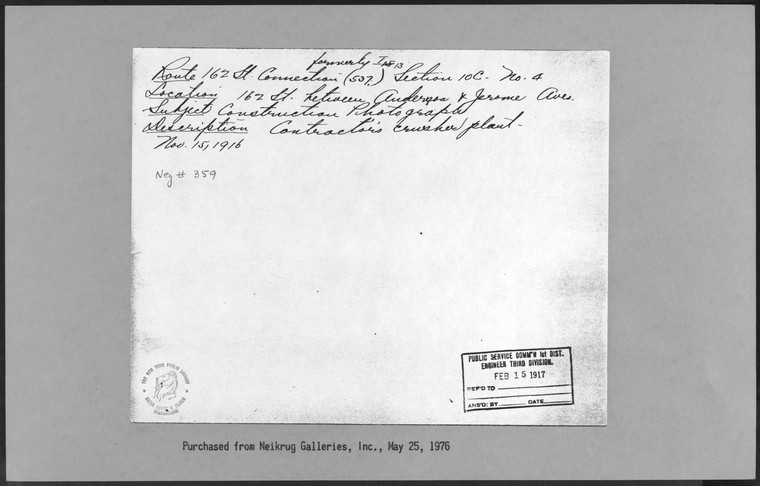 formerly
Route 162 St. Connection (537) Section 10C - No. 4
Location 162 St. between Anderson & Jerome Aves.
Subject Construction Photographs
Description Contractor's crusher plant -
Nov. 15, 1916
Neg # 359
PUBLIC SERVICE COMM'N 1st DIST.
ENGINEER THIRD DIVISION.
FEB 15 1917
REF'D TO
ANS'D: BY DATE
THE NEW YORK PUBLIC LIBRARY
ASTOR LENOX & TILDEN
FOUNDATIONS
Purchased from Neikrug Galleries, Inc., May 25, 1976